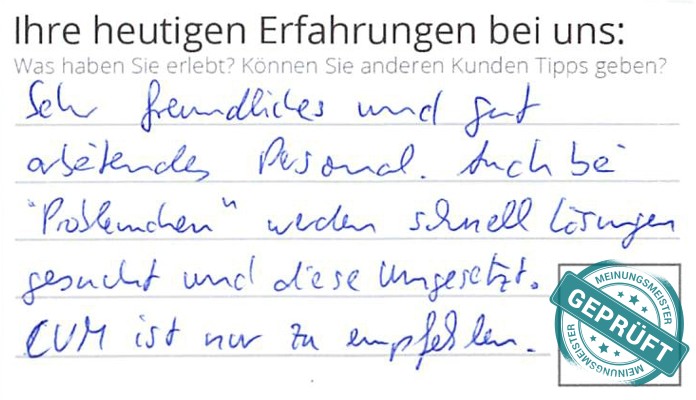 Ihre heutigen Erfahrungen bei uns:
Was haben Sie erlebt? Können Sie anderen Kunden Tipps geben?
Sehr freundliches und gut
arbeitendes Personal. Auch bei
"Problemchen" werden schnell Lösungen
gesucht und diese umgesetzt.
CVM ist nur zu empfehlen.
MEINUNGSMEISTER
GEPRÜFT
MEINUNGSMEISTER